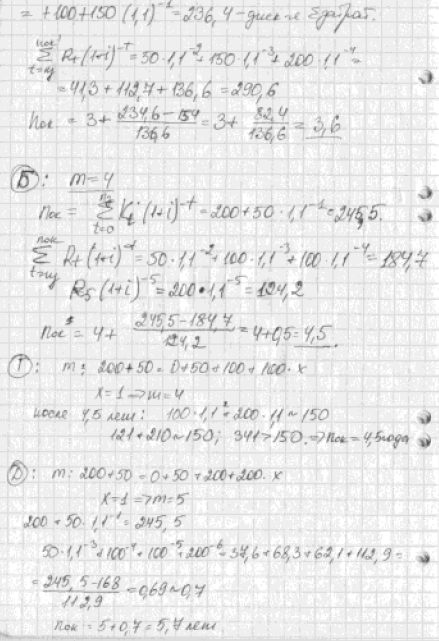 = +100+150 (1,1)⁻¹ = 236,4 - диск-е затрат.
Σ Rt (1+i)⁻ᵗ = 50·1,1⁻² + 150·1,1⁻³ + 200·1,1⁻⁴ =
= 41,3 + 112,7 + 136,6 = 290,6
nок = 3 + (234,6 - 154)/136,6 = 3 + 82,4/136,6 = 3,6
Б: m = 4
nок = Σ Kt (1+i)⁻ᵗ = 200 + 50·1,1⁻¹ = 245,5.
Σ Rt (1+i)⁻ᵗ = 50·1,1⁻² + 100·1,1⁻³ + 100·1,1⁻⁴ = 184,7
R5 (1+i)⁻⁵ = 200·1,1⁻⁵ = 124,2
nок = 4 + (245,5 - 184,7)/124,2 = 4 + 0,5 = 4,5.
Г: m: 200 + 50 = 0 + 50 + 100 + 100·x
x = 1 ⇒ m = 4
после 4,5 лет: 100·1,1² + 200·1,1 ~ 150
121 + 210 ~ 150; 341 > 150. ⇒ nок = 4,5 года
Д: m: 200 + 50 = 0 + 50 + 200 + 200·x
x = 1 ⇒ m = 5
200 + 50·1,1⁻¹ = 245,5
50·1,1⁻³ + 100⁻⁴ + 100⁻⁵ + 200⁻⁶ = 37,6 + 68,3 + 62,1 + 112,9 =
= (245,5 - 168)/112,9 = 0,69 ~ 0,7
nок = 5 + 0,7 = 5,7 лет